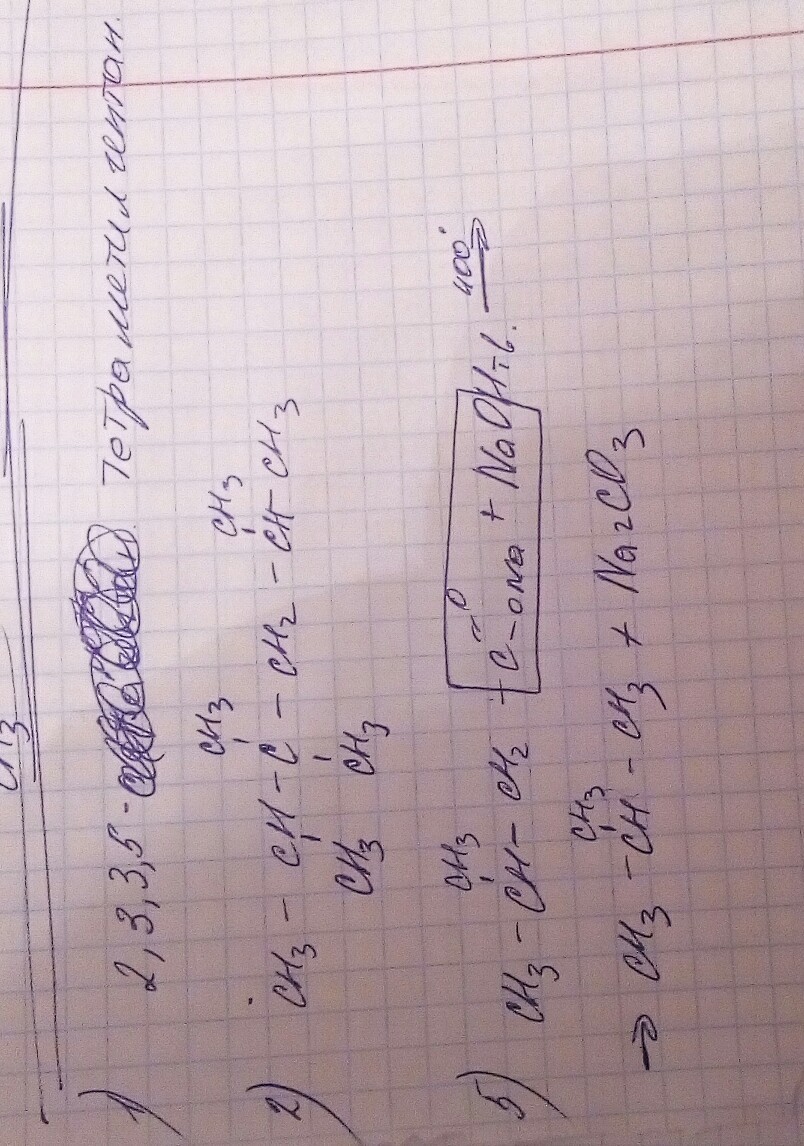 CH3
1) 2,3,3,5- Тетраметил гептан.
2) CH3 - CH - C - CH2 - CH - CH3
CH3 CH3
CH3 CH3
5) CH3 - CH - CH2 - C - ONa + NaOH тв. 400°
CH3 =O
→ CH3 - CH - CH3 + Na2CO3
CH3